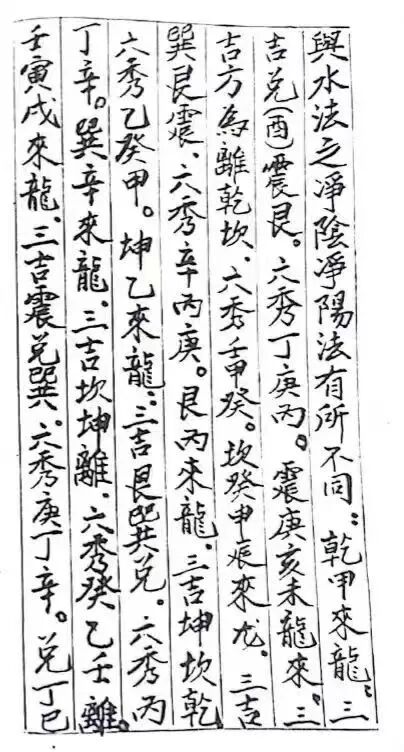 與水法之淨陰淨陽法有所不同：乾甲來龍：三
吉兌(酉)震艮。六秀丁庚丙。震庚亥未龍來。三
吉方為離乾坎、六秀壬甲癸。坎癸申辰來龙、三吉
巽艮震、六秀辛丙庚。艮丙來龍、三吉坤坎乾
六秀乙癸甲。坤乙來龍：三吉艮巽兌。六秀丙
丁辛。巽辛來龍、三吉坎坤離、六秀癸乙壬離。
壬寅戌來龍、三吉震兌巽、六秀庚丁辛。兌丁巳